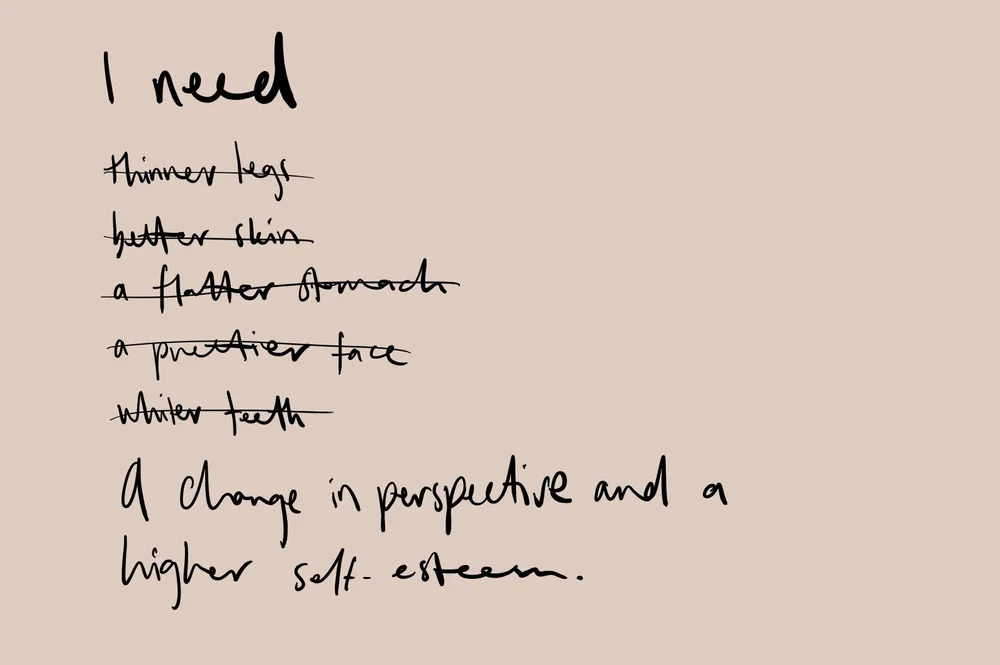 I need
thinner legs
better skin
a flatter stomach
a prettier face
whiter teeth
A change in perspective and a
higher self-esteem.